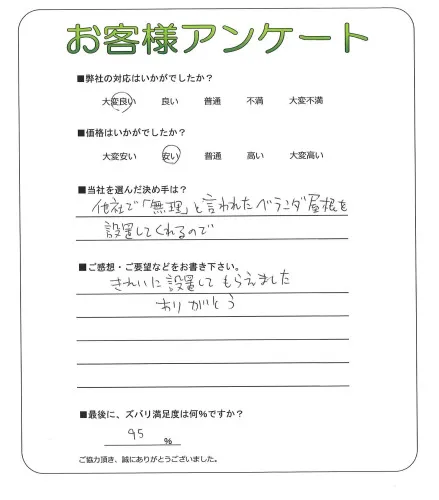 お客様アンケート
■弊社の対応はいかがでしたか？
大変良い 良い 普通 不満 大変不満
■価格はいかがでしたか？
大変安い 安い 普通 高い 大変高い
■当社を選んだ決め手は？
他社で「無理」と言われたベランダ屋根を
設置してくれるので
■ご感想・ご要望などをお書き下さい。
きれいに設置してもらえました
ありがとう
■最後に、ズバリ満足度は何％ですか？
95 ％
ご協力頂き、誠にありがとうございました。